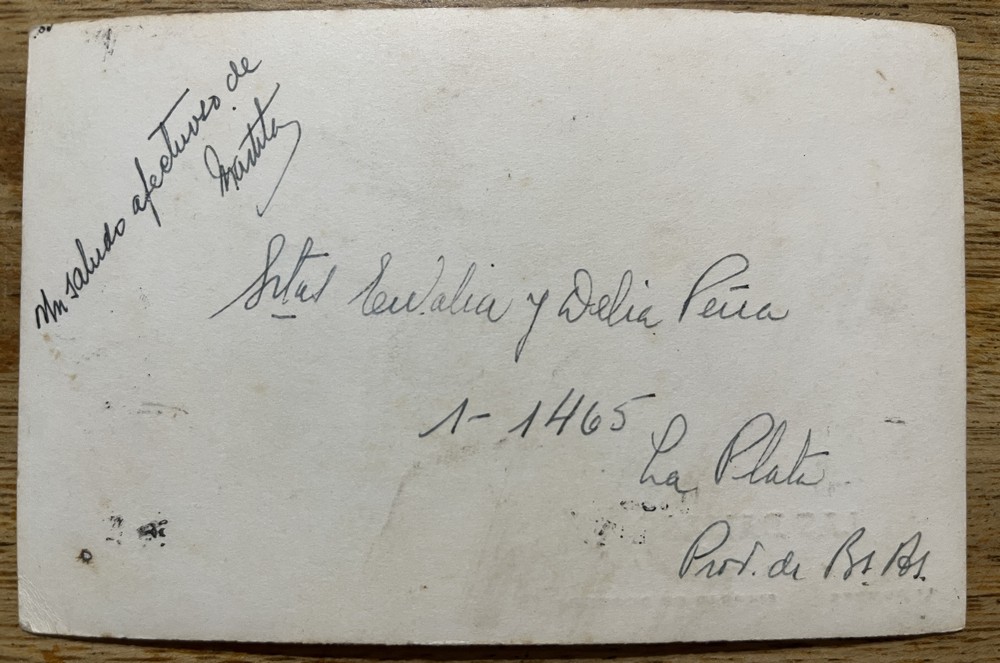 Un saludo afectuoso de
Martita
Srtas Eulalia y Delia Peña
1 - 1465
La Plata
Prov. de Bs. As.